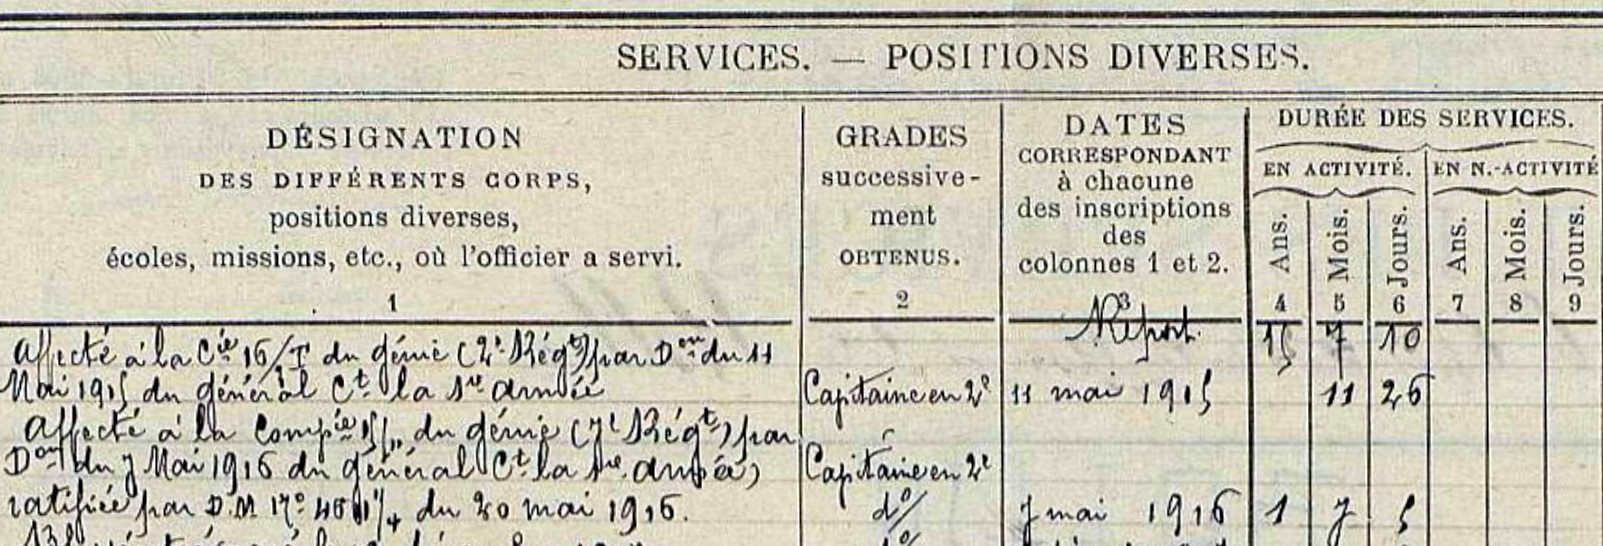 SERVICES. — POSITIONS DIVERSES.
DÉSIGNATION
DES DIFFÉRENTS CORPS,
positions diverses,
écoles, missions, etc., où l'officier a servi.
1
GRADES
successive-
ment
OBTENUS.
2
DATES
CORRESPONDANT
à chacune
des inscriptions
des
colonnes 1 et 2.
3
DURÉE DES SERVICES.
EN ACTIVITÉ. EN N.-ACTIVITÉ
Ans. Mois. Jours. Ans. Mois. Jours.
4 5 6 7 8 9
Report. 15 7 10
Affecté à la Cie 16/T du génie (2e Régt) par Don du 11
Mai 1915 du général Ct la 1re armée Capitaine en 2e 11 mai 1915 11 26
Affecté à la Compie du génie (7e Régt) par
Don du 7 Mai 1916 du général Ct la armée) Capitaine en 2e
ratifiée par D.M. du 20 mai 1916. do/ 7 mai 1916 1 7 5